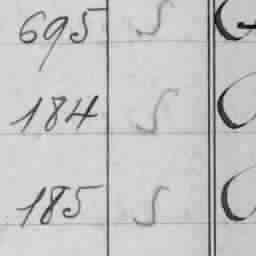 695 S
184 S
185 S